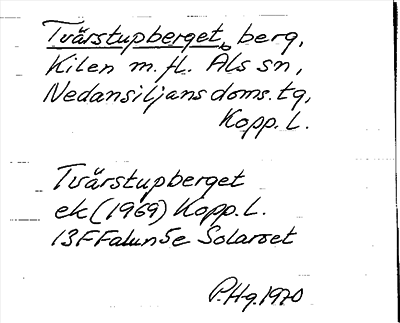 Tvärstupberget, berg,
Kilen m.fl. Als sn,
Nedansiljans doms.tg,
Kopp.l.
Tvärstupberget
ek (1969) Kopp.l.
13F Falun 5e Solarvet
P.Hg.1970